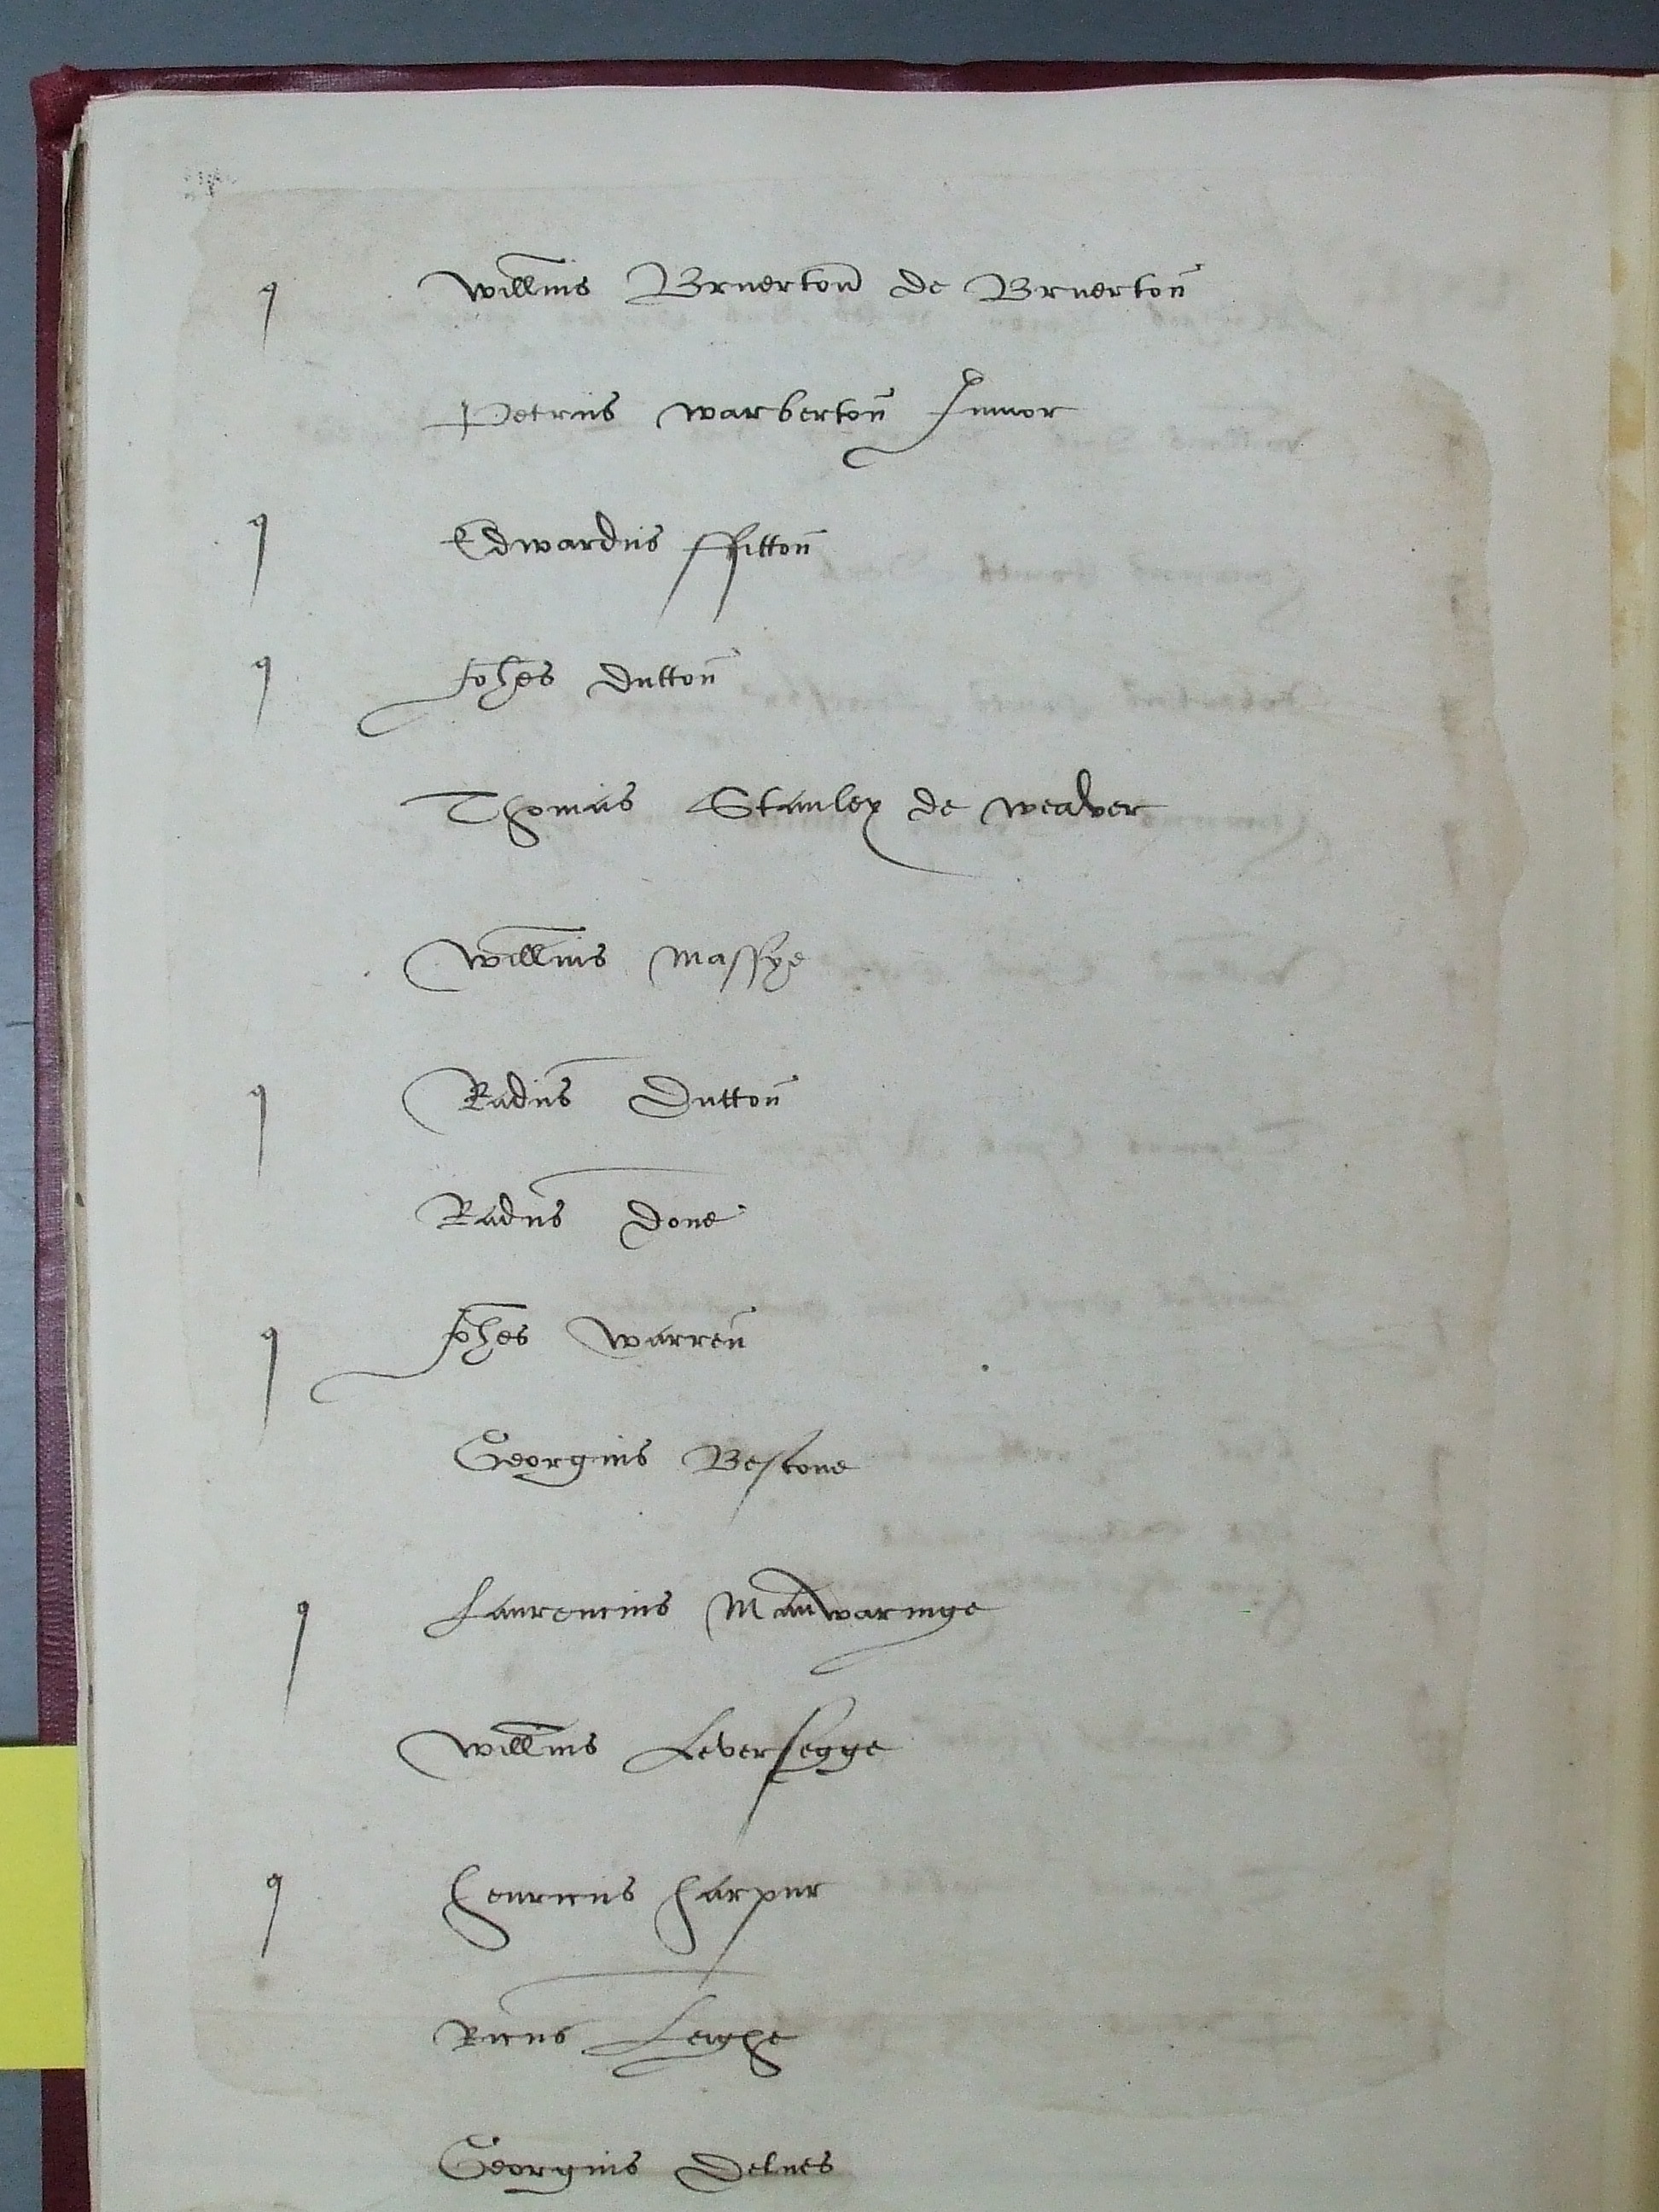 q Willmus Bruerton de Bruerton
Petrus Warberton Junior
q Edwardus ffitton
q Johes Dutton
Thomas Stanley de Weaver
Willmus Massye
q Radus Dutton
Radus Done
q Johes Warren
Georgius Bestone
q Laurencius Manwaringe
Willmus Leversegge
q Henricus Harpur
Ricus Leighe
Georgius Delves